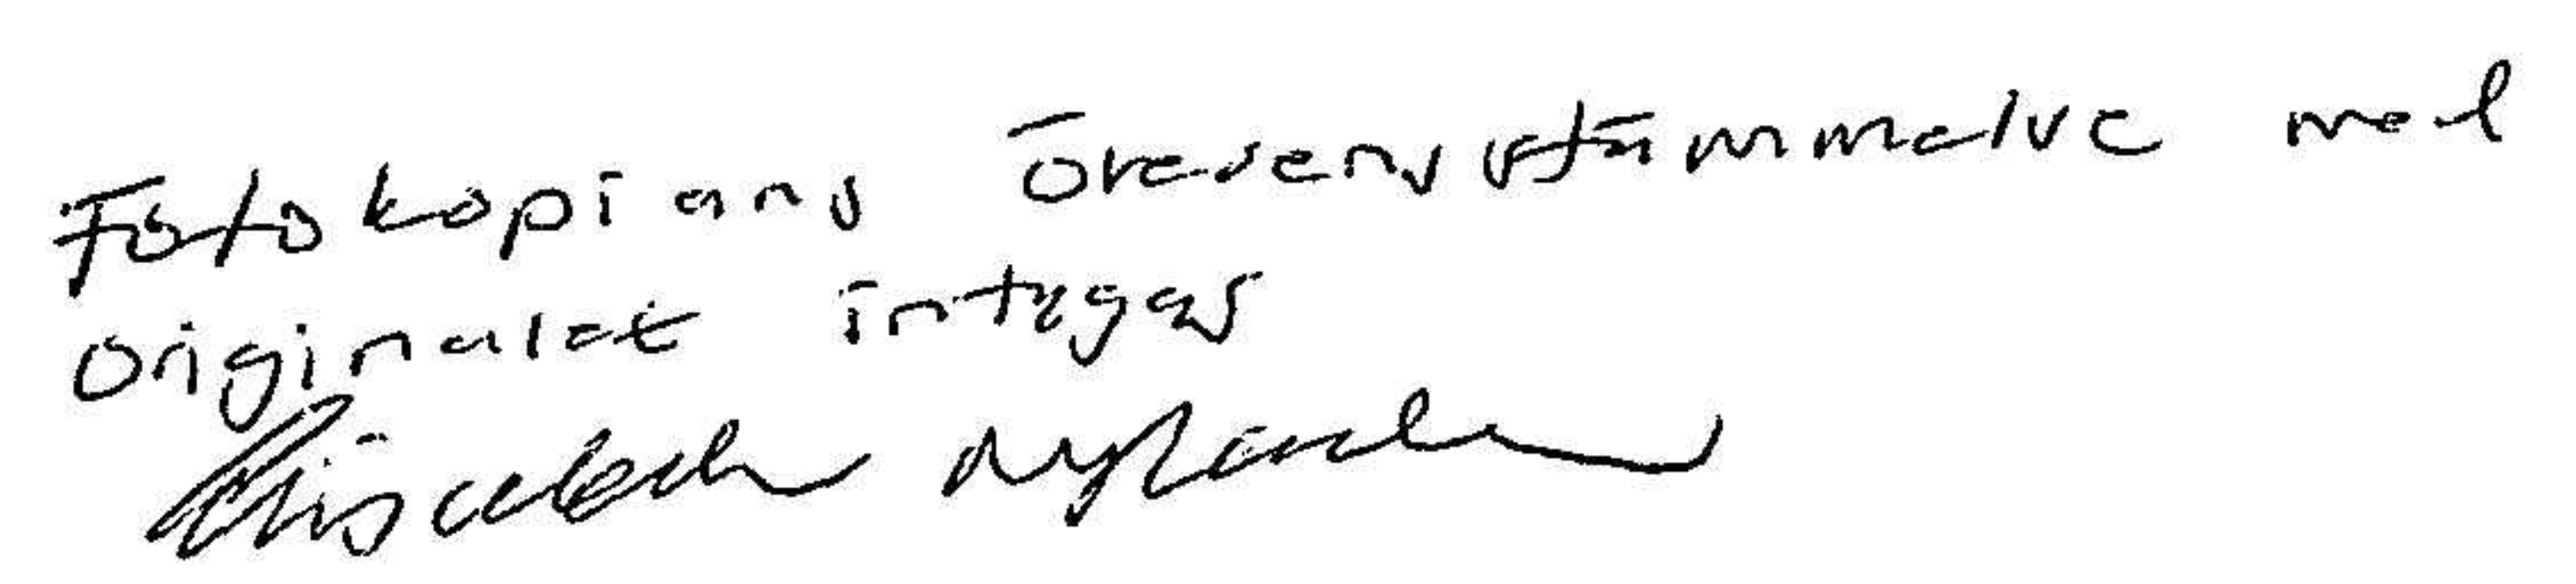 Fotokopians överensstämmelse med
originalet intygas
Elisabeth Nylande